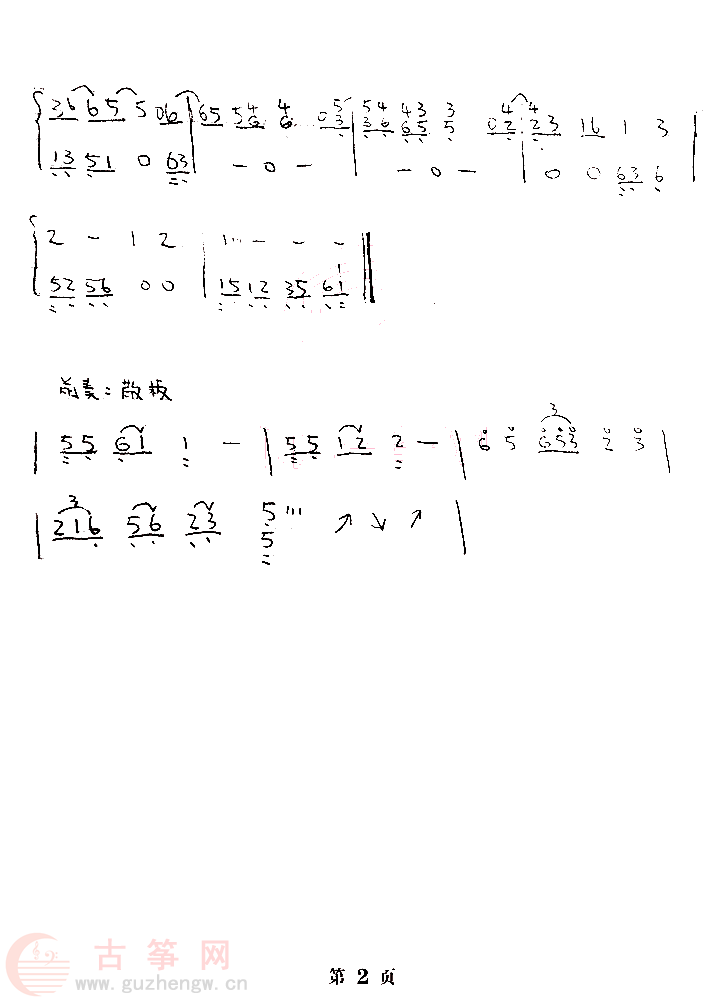 36 65 5 06 | 65 54 4 05 | 54 43 3 04 | 4 3 16 1 3 |
6 6 3 36 65 5 02 2
13 51 0 63 | - 0 - | - 0 - | 0 0 63 6 |
2 - 1 2 | 1''' - - - ‖
52 56 0 0 | 15 12 35 61
1
前奏：散板
| 55 61 1 - | 55 12 2 - | 6 5 653 2 3 |
3
| 216 56 23 5''' ↗ ↘ ↗ |
3
5
古筝网
www.guzhengw.cn
第 2 页